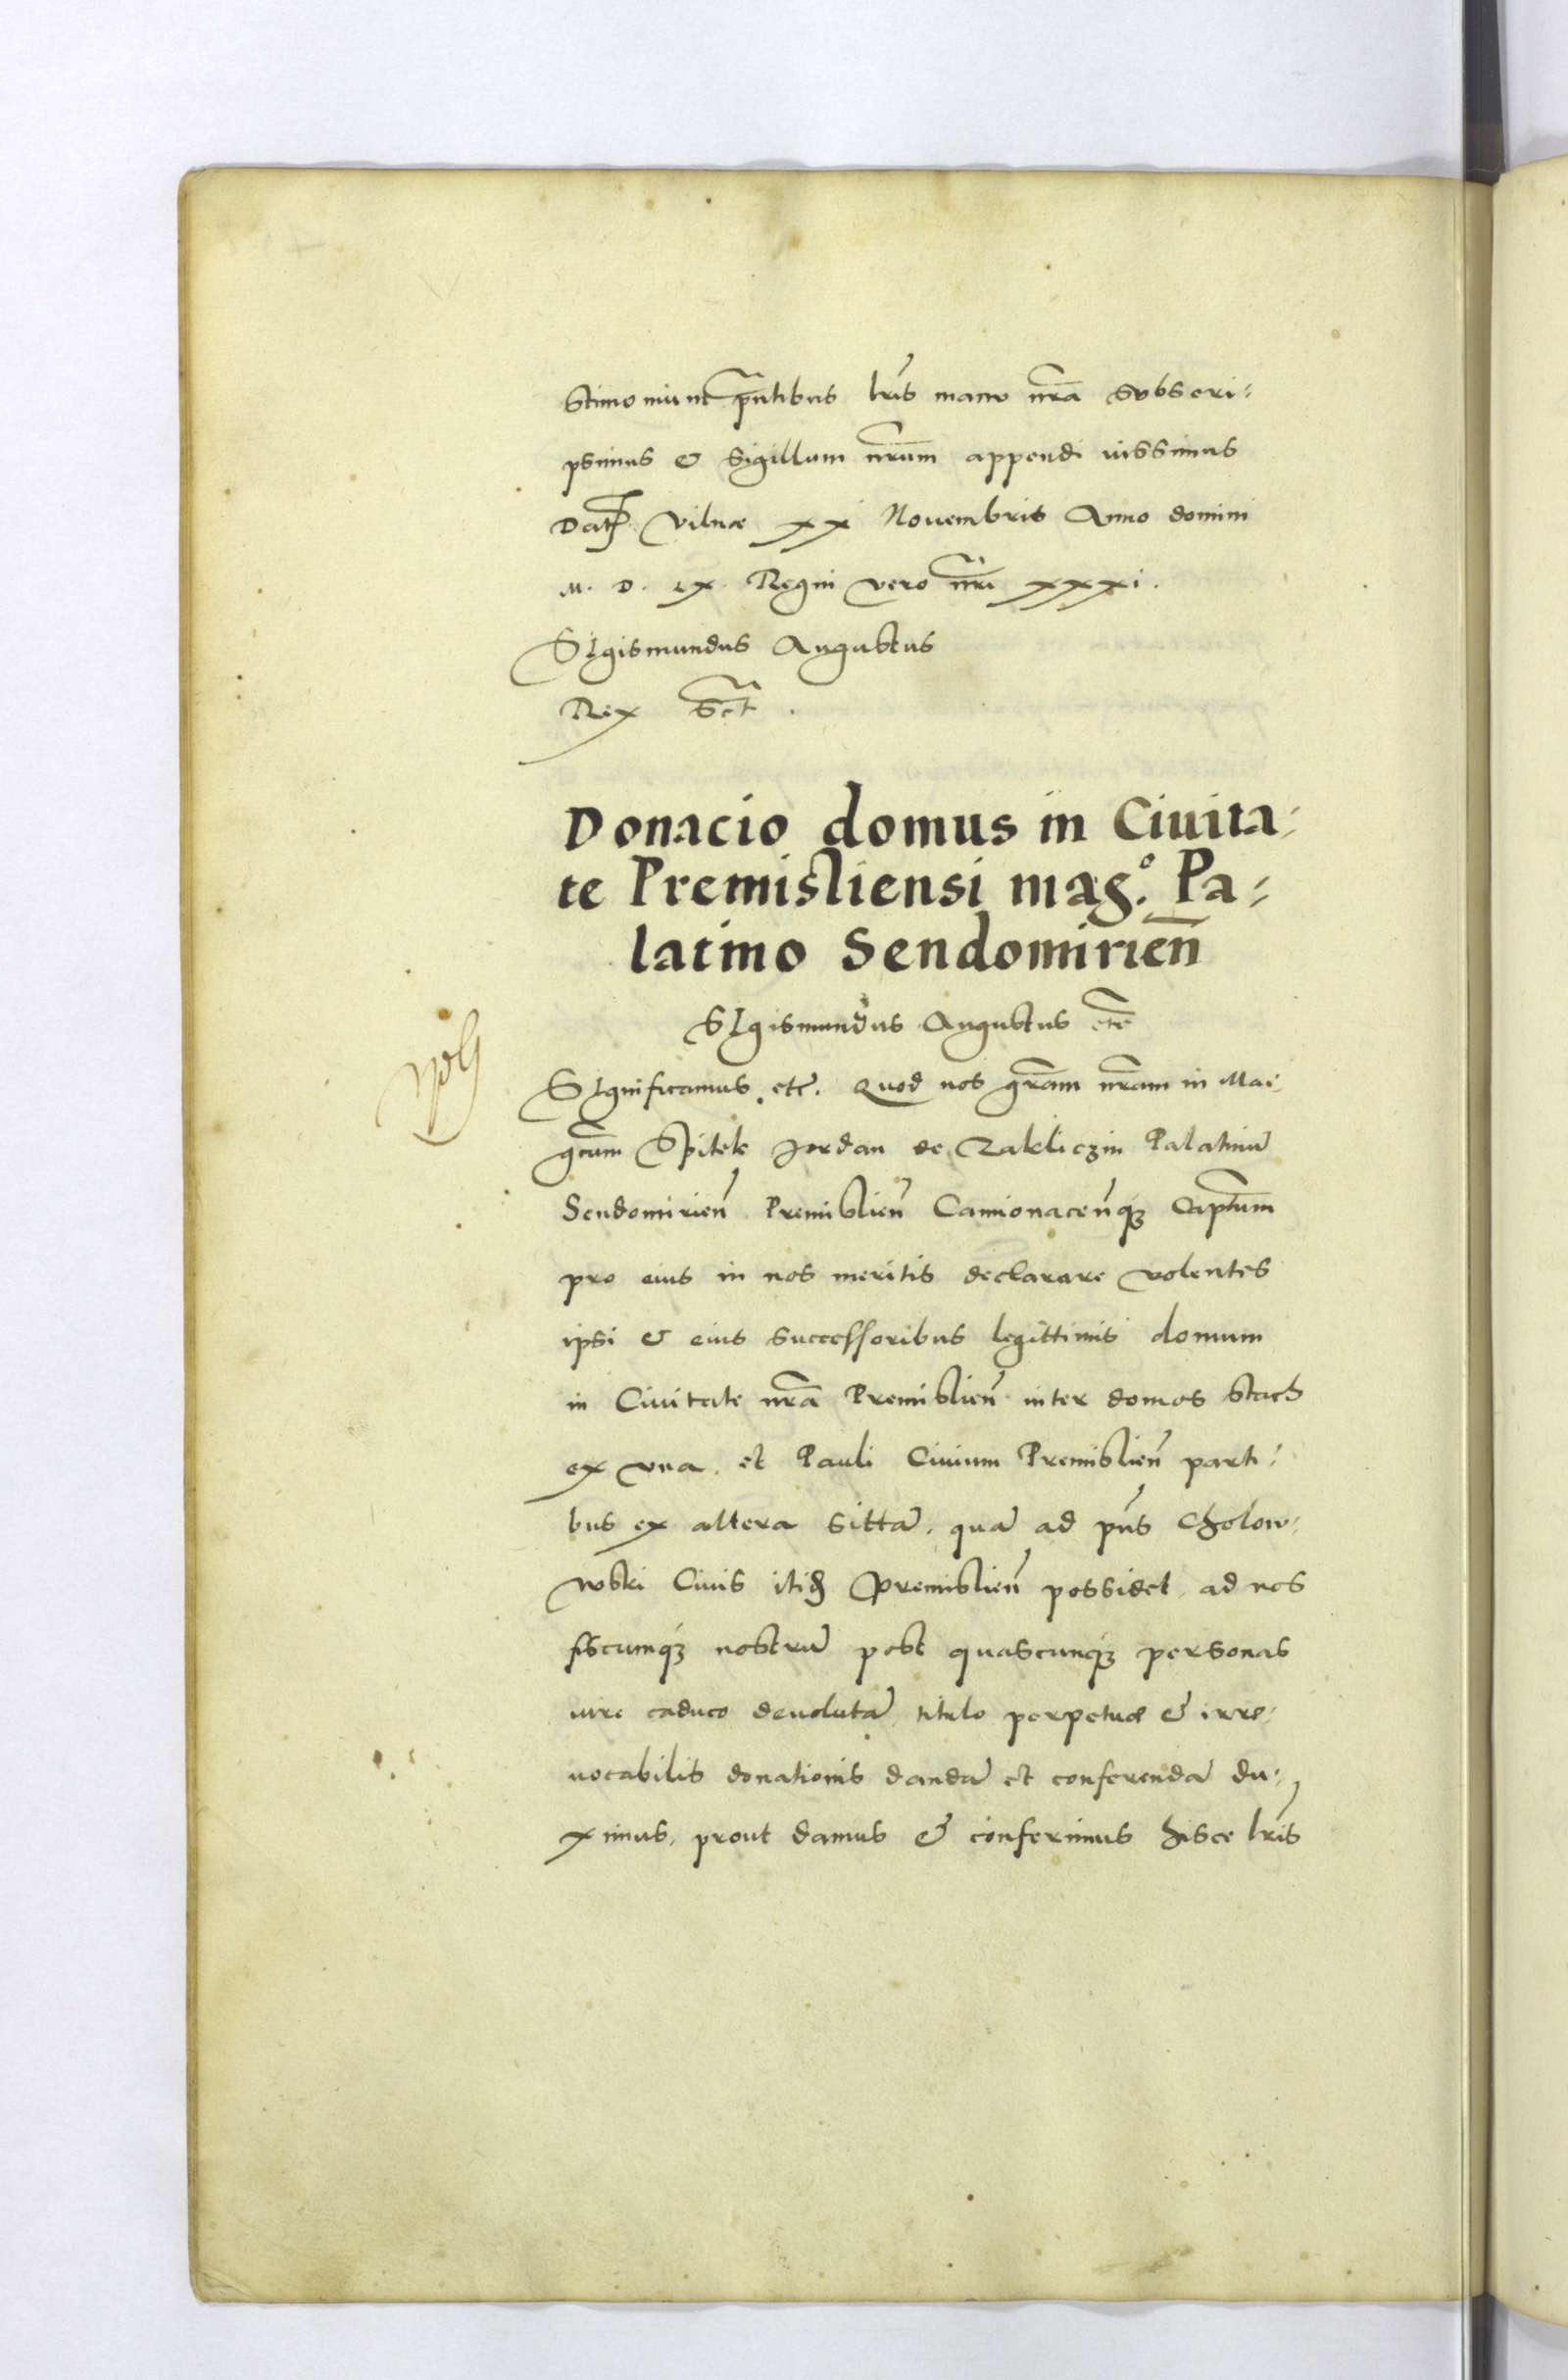 stimoniumq̃ pñtibus lris manu nrã subscri=
psimus & Sigillum nrũm appendi iussimus
Dat̃ Vilnæ xx Nouembris Anno domini
M. D. LX. Regni vero nri xxxi.
SIgismundus Augustus
Rex sst.
Donacio domus in Ciuita=
te Premisliensi mag.º Pa=
latino Sendomirieñ
SIgismundus Augustus etc̃
SIgnificamus etc̃. Quod nos grãm nrãm in Mai=
gcũm Spitek Jordan de Zakliczin Palatinũ
Sendomirieñ Premislieñ Camionaceñqz Captũm
pro eius in nos meritis declarare volentes
ipsi & eius successoribus legittimis domum
in Ciuitate nrã Premislieñ inter domos Stach
ex vna et Pauli Ciuium Premislieñ parti=
bus ex altera sittã, quã ad pñs Cholow=
wski Ciuis itid Premislieñ possidet ad nos
fiscumqz nostrũ post quascunqz personas
iure caduco deuolutã titulo perpetuæ & irre=
uocabilis donationis dandã et conferendã du=
ximus, prout damus & conferimus hisce lris